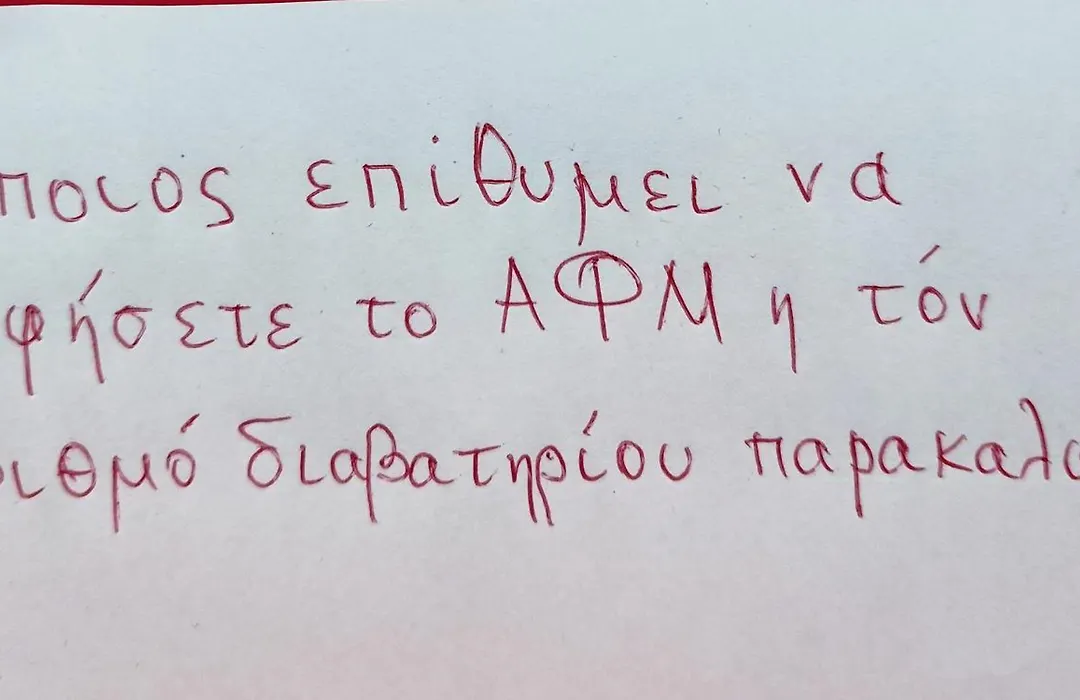 ποιος επιθυμει να
φήσετε το ΑΦΜ η τόν
ιθμό διαβατηρίου παρακαλο